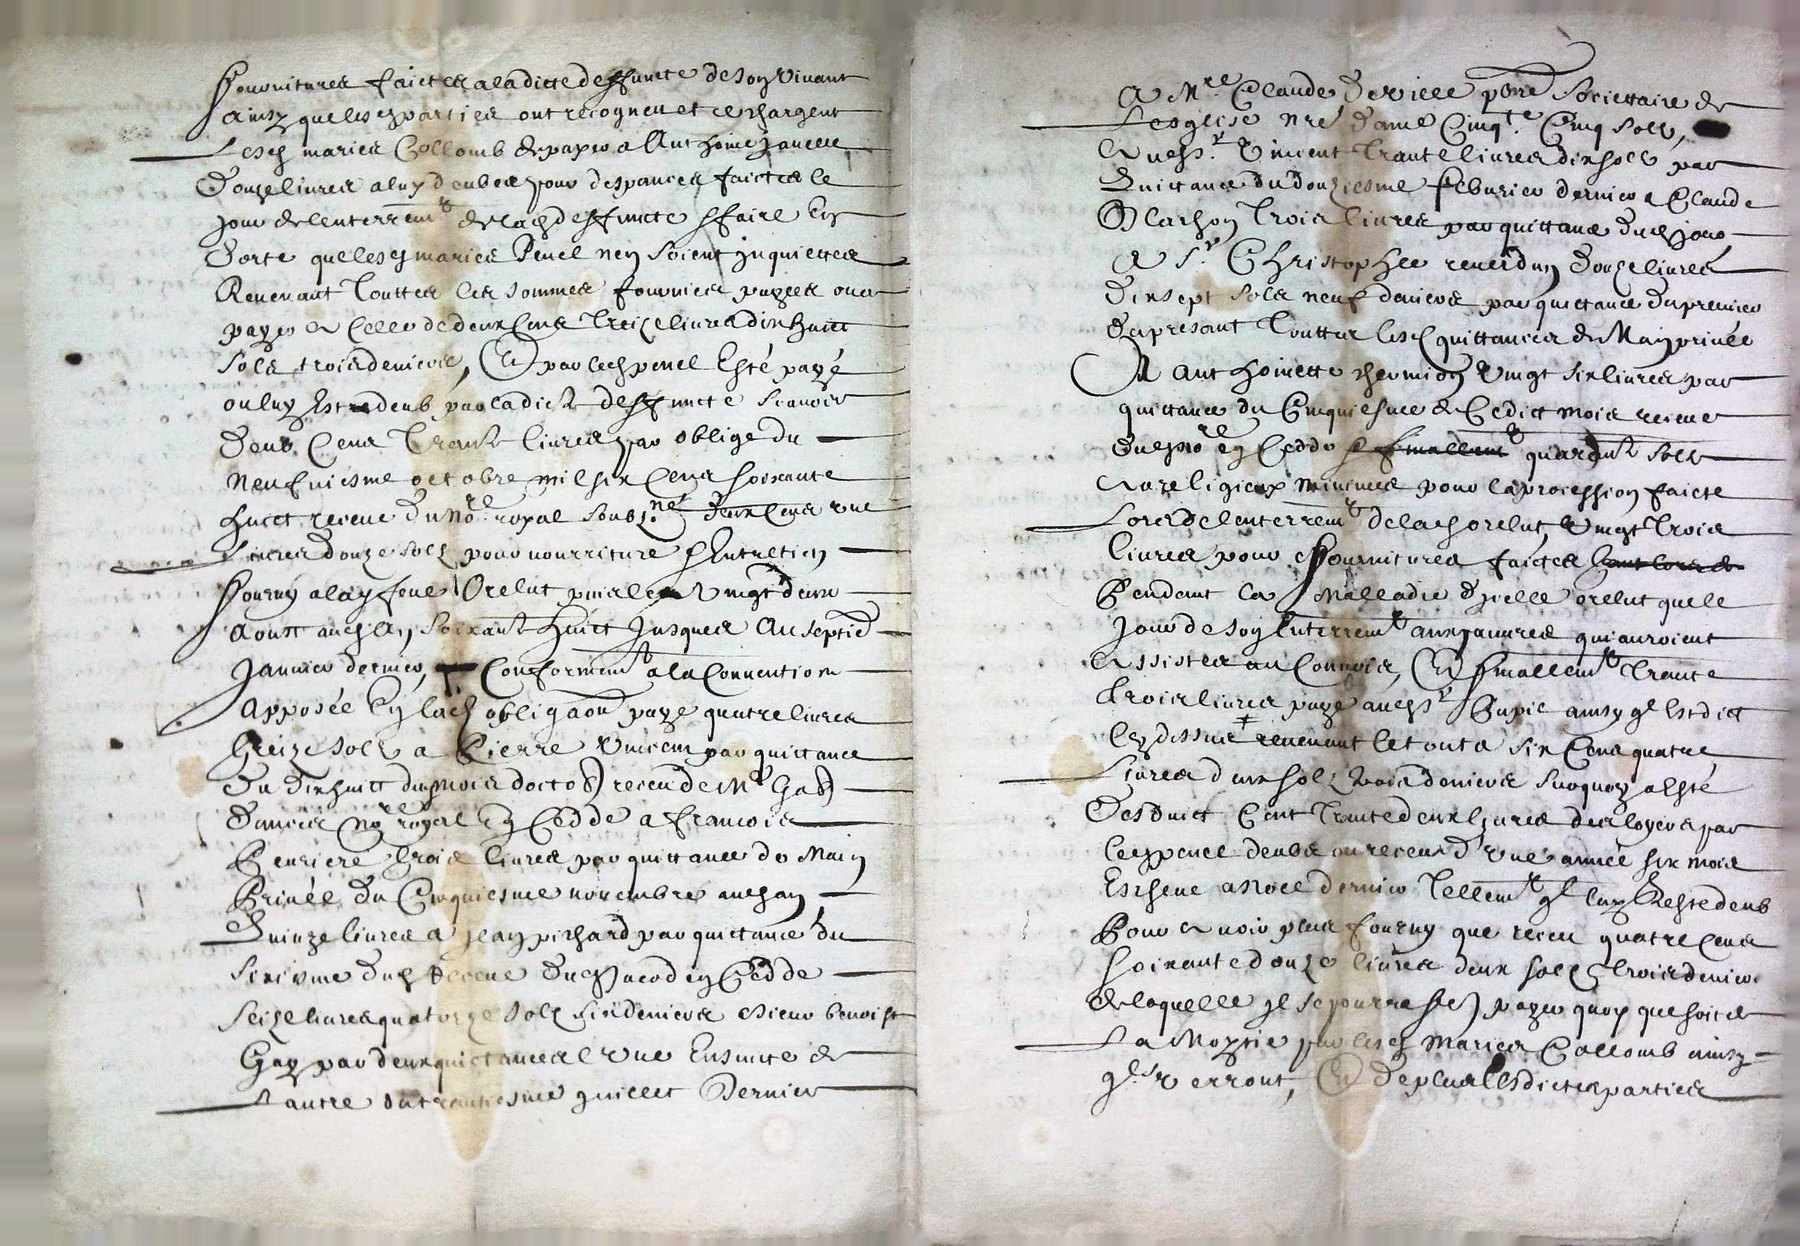 fournitures faictes a ladicte deffuncte de son vivant
ainsy que lesd parties ont recogneu et se chargent
Lesd maries Collomb de payer a Anthoine Janelle
Douze livres a luy deubes pour despances faictes le
jour de lenterremt de lad deffuncte & faire En
Sorte que lesd maries Penel nen Soient jnquiettes
Revenant Touttes les sommes fournies payees ou a
payer a Celle de deux Cens Treize livres dix huict
Sols trois deniers, Et par led penel Esté payé
ou luy Estre deub par ladicte deffuncte Scavoir
Deux Cens Trante livres par oblige du
Neufviesme octobre mil six Cens soixante
huict receue du nore royal Soubzné deux Cens une
Livres Douze Solz pour nourriture & Entretien
fourny a lad feue Orelut puis le Vingt deux
Aoust aud an Soixante huict Jusques Au Septie
Janvier dernier, Conformemt a la Convention
Apposée En lad obligaon payé quatre livres
Treize Solz a Pierre Vincent par quittance
Du dix huict du mois doctob receu de Me Gab
Dancer nore royal En Cedde a francois
Perriere Trois livres par quittance de Main
Privée du Cinquiesme novembre aud an
Quinze livres a Jean pichard par quittance du
Sixiesme dud receue dud En Cedde
Seize livres quatorze Solz Six deniers a Sieur benoist
Gay par deux quittances l'une Ensuitte de
Lautre du trantiesme Juillet Dernier
A Mre Claude Deville pbre Societtaire de
Lesglise Nre dame Cinqte Cinq Solz,
Aud Sr Vincent Trante livres dix sols par
Quittance du douziesme febvrier dernier a Claude
Trois livres par quittance dud jour
A Sr Christophle reverdun Douze livres
Dix sept Sols neuf deniers par quittance du premier
du presant Touttes lesd quittances de Main privée
A Anthoinette Vingt six livres par
quittance du Cinquiesme de Cedict mois receue
dud nore en Cedde & finallemt quarante Solz
Aux religieux minimes pour la procession faicte
Lors de lenterremt de lad orelut, Vingt Trois
livres pour fournitures faictes
Pendant la Malladie dicelle orelut que le
Jour de son Enterremt aux pauvres qui auroient
Assistes au Convois, Et finallemt Trante
trois livres payé aud Sr Pupic ainsy q Est dict
Cy dessus revenant le tout a Six Cens quatre
Livres deux Solz trois deniers Surquoy a Esté
Desduict Cent Trante deux livres des loyers par
led penel deubs ou receus d'une année six mois
Escheue a Noel dernier Tellemt q luy Reste deub
Pour avoir plus fourny que receu quatre Cens
Soixante douze livres deux Solz Trois deniers
de laquelle Il se pourra fere payer quoy que soit de
La Moytié par lesd Maries Collomb ainsy
qls verront, Et Deplus Lesdictes parties